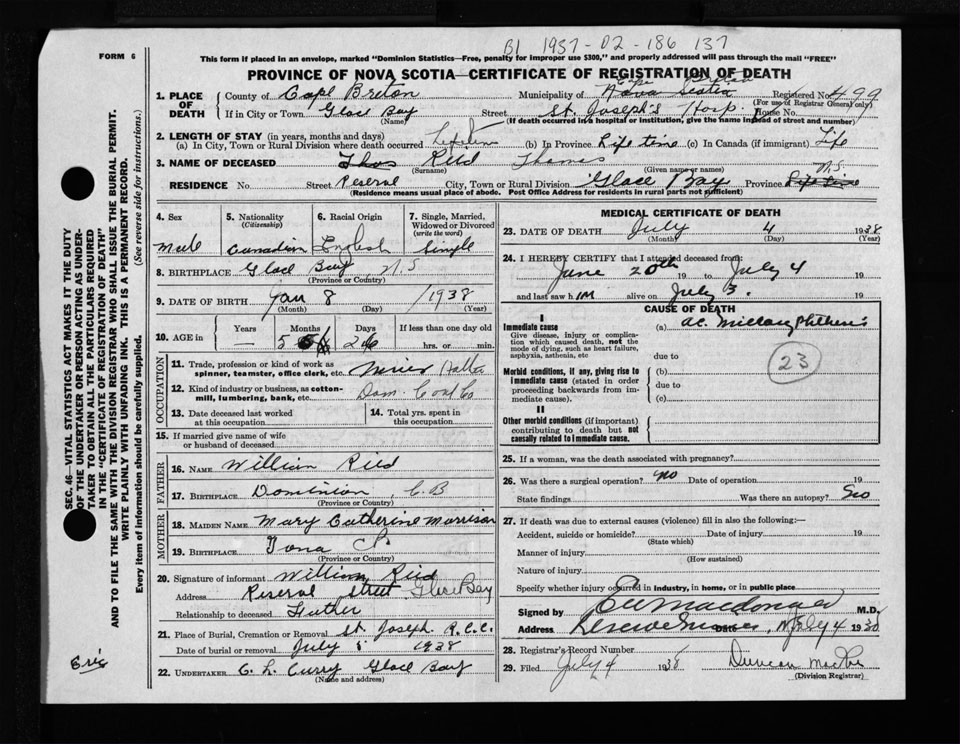 B1 1937-02-186 137
FORM 6
This form if placed in an envelope, marked "Dominion Statistics—Free, penalty for improper use $300," and properly addressed will pass through the mail "FREE"
PROVINCE OF NOVA SCOTIA—CERTIFICATE OF REGISTRATION OF DEATH
1. PLACE OF DEATH
County of Cape Breton Municipality of Cape Breton Nova Scotia Registered No. 499
(For use of Registrar General only)
If in City or Town Glace Bay Street St. Joseph's Hosp. House No.
(Name) (If death occurred in a hospital or institution, give the name instead of street and number)
2. LENGTH OF STAY (in years, months and days)
(a) In City, Town or Rural Division where death occurred Lifetime (b) In Province Life time (c) In Canada (if immigrant) Life
3. NAME OF DECEASED Thos Reid Thomas
(Surname) (Given name or names)
RESIDENCE No. Street Reserve City, Town or Rural Division Glace Bay Province N.S. Life time
(Residence means usual place of abode. Post Office Address for residents in rural parts not sufficient)
SEC. 46—VITAL STATISTICS ACT MAKES IT THE DUTY OF THE UNDERTAKER OR PERSON ACTING AS UNDERTAKER TO OBTAIN ALL THE PARTICULARS REQUIRED IN THE "CERTIFICATE OF REGISTRATION OF DEATH" AND TO FILE THE SAME WITH THE DIVISION REGISTRAR WHO SHALL ISSUE THE BURIAL PERMIT.
WRITE PLAINLY WITH UNFADING INK. THIS IS A PERMANENT RECORD.
Every item of information should be carefully supplied. (See reverse side for instructions.)
4. Sex 5. Nationality (Citizenship) 6. Racial Origin 7. Single, Married, Widowed or Divorced (write the word)
Male Canadian English Single
8. BIRTHPLACE Glace Bay, N.S
(Province or Country)
9. DATE OF BIRTH Jan 8 1938
(Month) (Day) (Year)
10. AGE in Years Months Days If less than one day old
— 5 26 hrs. or min.
OCCUPATION
11. Trade, profession or kind of work as spinner, teamster, office clerk, etc.
12. Kind of industry or business, as cotton-mill, lumbering, bank, etc. Dom. Coal Co
13. Date deceased last worked at this occupation 14. Total yrs. spent in this occupation
15. If married give name of wife or husband of deceased
FATHER
16. NAME William Reid
17. BIRTHPLACE Dominion, C.B
(Province or Country)
MOTHER
18. MAIDEN NAME Mary Catherine Morrison
19. BIRTHPLACE Iona
(Province or Country)
20. Signature of informant William Reid
Address Reserve Street Glace Bay
Relationship to deceased Father
21. Place of Burial, Cremation or Removal St. Joseph R.C.C.
Date of burial or removal July 5 1938
22. UNDERTAKER C. L. Curry Glace Bay
(Name and address)
MEDICAL CERTIFICATE OF DEATH
23. DATE OF DEATH July 4 1938
(Month) (Day) (Year)
24. I HEREBY CERTIFY that I attended deceased from:
June 20th 19 to July 4 19
and last saw h im alive on July 3. 19
CAUSE OF DEATH
I
Immediate cause (a) ac.
Give disease, injury or complication which caused death, not the mode of dying, such as heart failure, asphyxia, asthenia, etc
due to
23
Morbid conditions, if any, giving rise to immediate cause (stated in order proceeding backwards from immediate cause).
(b)
due to
(c)
II
Other morbid conditions (if important) contributing to death but not causally related to immediate cause.
25. If a woman, was the death associated with pregnancy?
26. Was there a surgical operation? No Date of operation 19
State findings Was there an autopsy? No
27. If death was due to external causes (violence) fill in also the following:—
Accident, suicide or homicide? Date of injury 19
(State which)
Manner of injury
(How sustained)
Nature of injury
Specify whether injury occurred in industry, in home, or in public place
Signed by Macdonald M.D.
Address Reserve Mines, July 4 1938
28. Registrar's Record Number
29. Filed July 4 1938 Duncan
(Division Registrar)